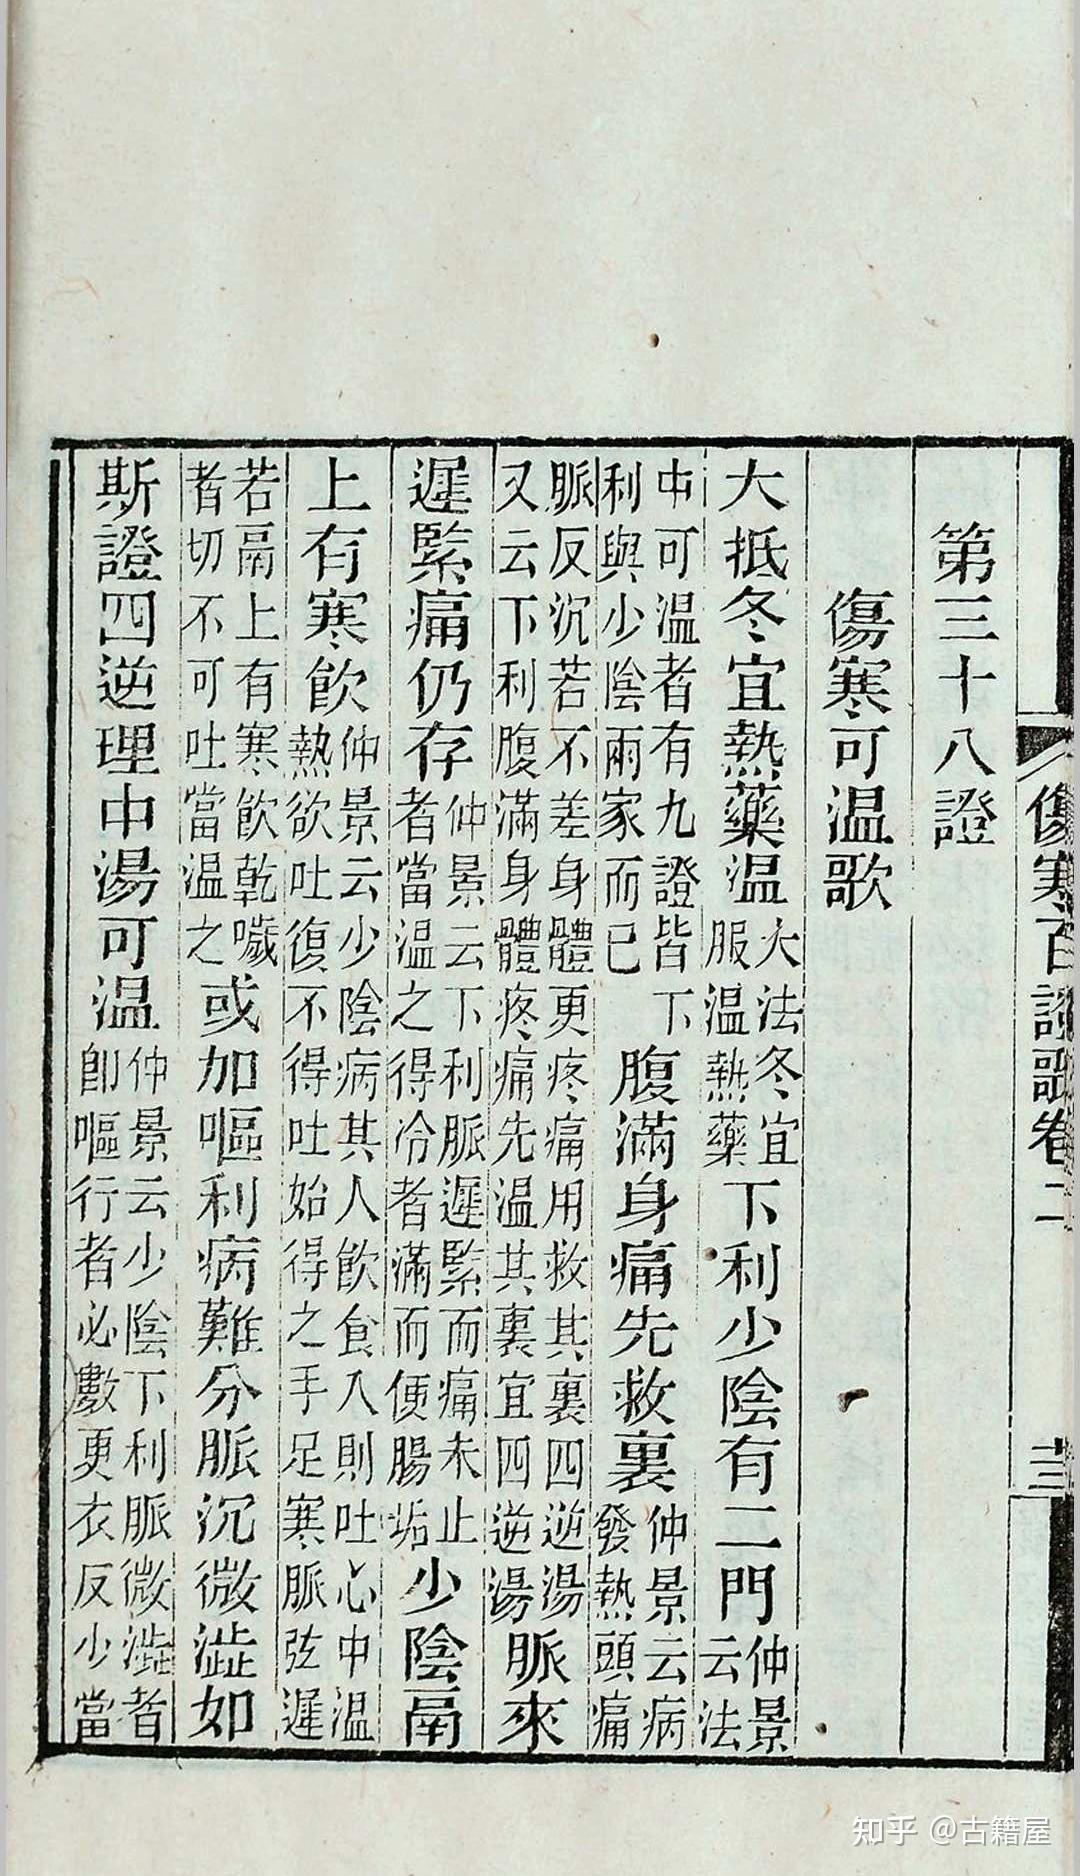 傷寒百證歌卷二
第三十八證
傷寒可温歌
大抵冬宜熱藥温大法冬宜服温熱藥下利少陰有二門仲景云法
中可温者有九證皆下利與少陰兩家而已腹滿身痛先救裏仲景云病發熱頭痛
脈反沉若不差身體更疼痛用救其裏四逆湯又云下利腹滿身體疼痛先温其裏宜四逆湯脈來
遲緊痛仍存仲景云下利脈遲緊而痛未止者當温之得冷者滿而便腸垢少陰鬲
上有寒飲仲景云少陰病其人飲食入則吐心中温熱欲吐復不得吐始得之手足寒脈弦遲
若鬲上有寒飲乾噦者切不可吐當温之或加嘔利病難分脈沉微澁如
斯證四逆理中湯可温仲景云少陰下利脈微澁者卽嘔行者必數更衣反少當
知乎 @古籍屋